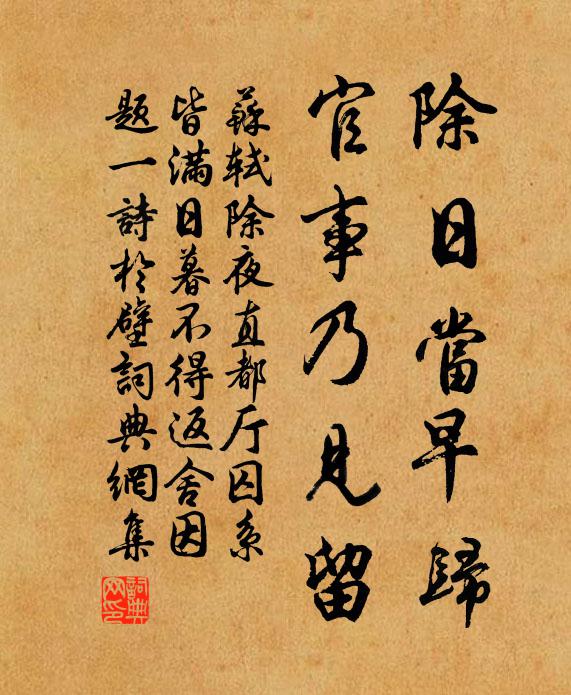 除日當早歸
官事乃見留
蘇軾除夜直都厅囚系
皆滿日暮不得返舍因
題一詩於壁詞典網集
詞典
网印